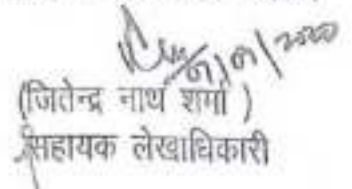 (जितेन्द्र नाथ शर्मा )
सहायक लेखाधिकारी